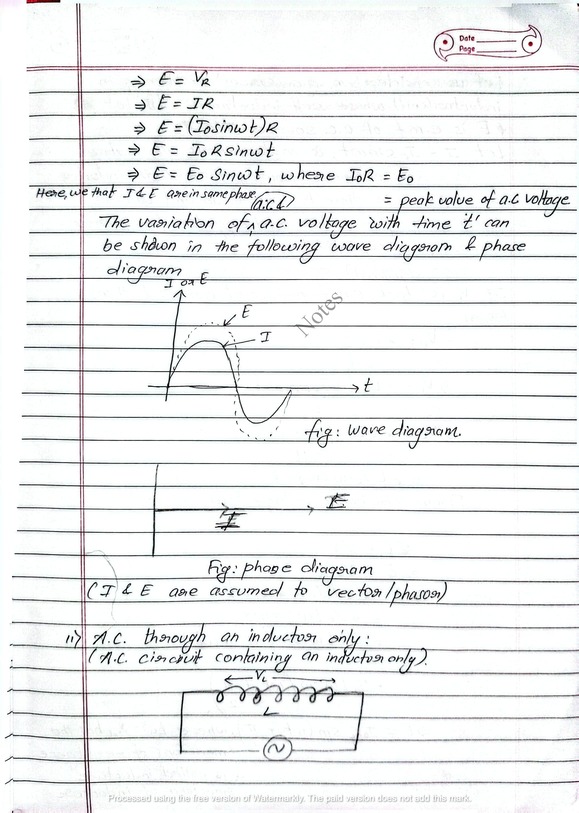 Date
Page
⇒ E = V_R
⇒ E = IR
⇒ E = (I₀sinωt)R
⇒ E = I₀Rsinωt
⇒ E = E₀ sinωt, where I₀R = E₀
Here, we that I & E are in same phase = peak value of a.c voltage
(a.c &)
The variation of ^ a.c. voltage with time 't' can
be shown in the following wave diagram & phase
diagram
I or E
E
I
Notes
t
fig: wave diagram.
E
I
Fig: phase diagram
(I & E are assumed to vector/phasor)
ii) A.C. through an inductor only:
(A.C. circuit containing an inductor only).
V_L
L
Processed using the free version of Watermarkly. The paid version does not add this mark.